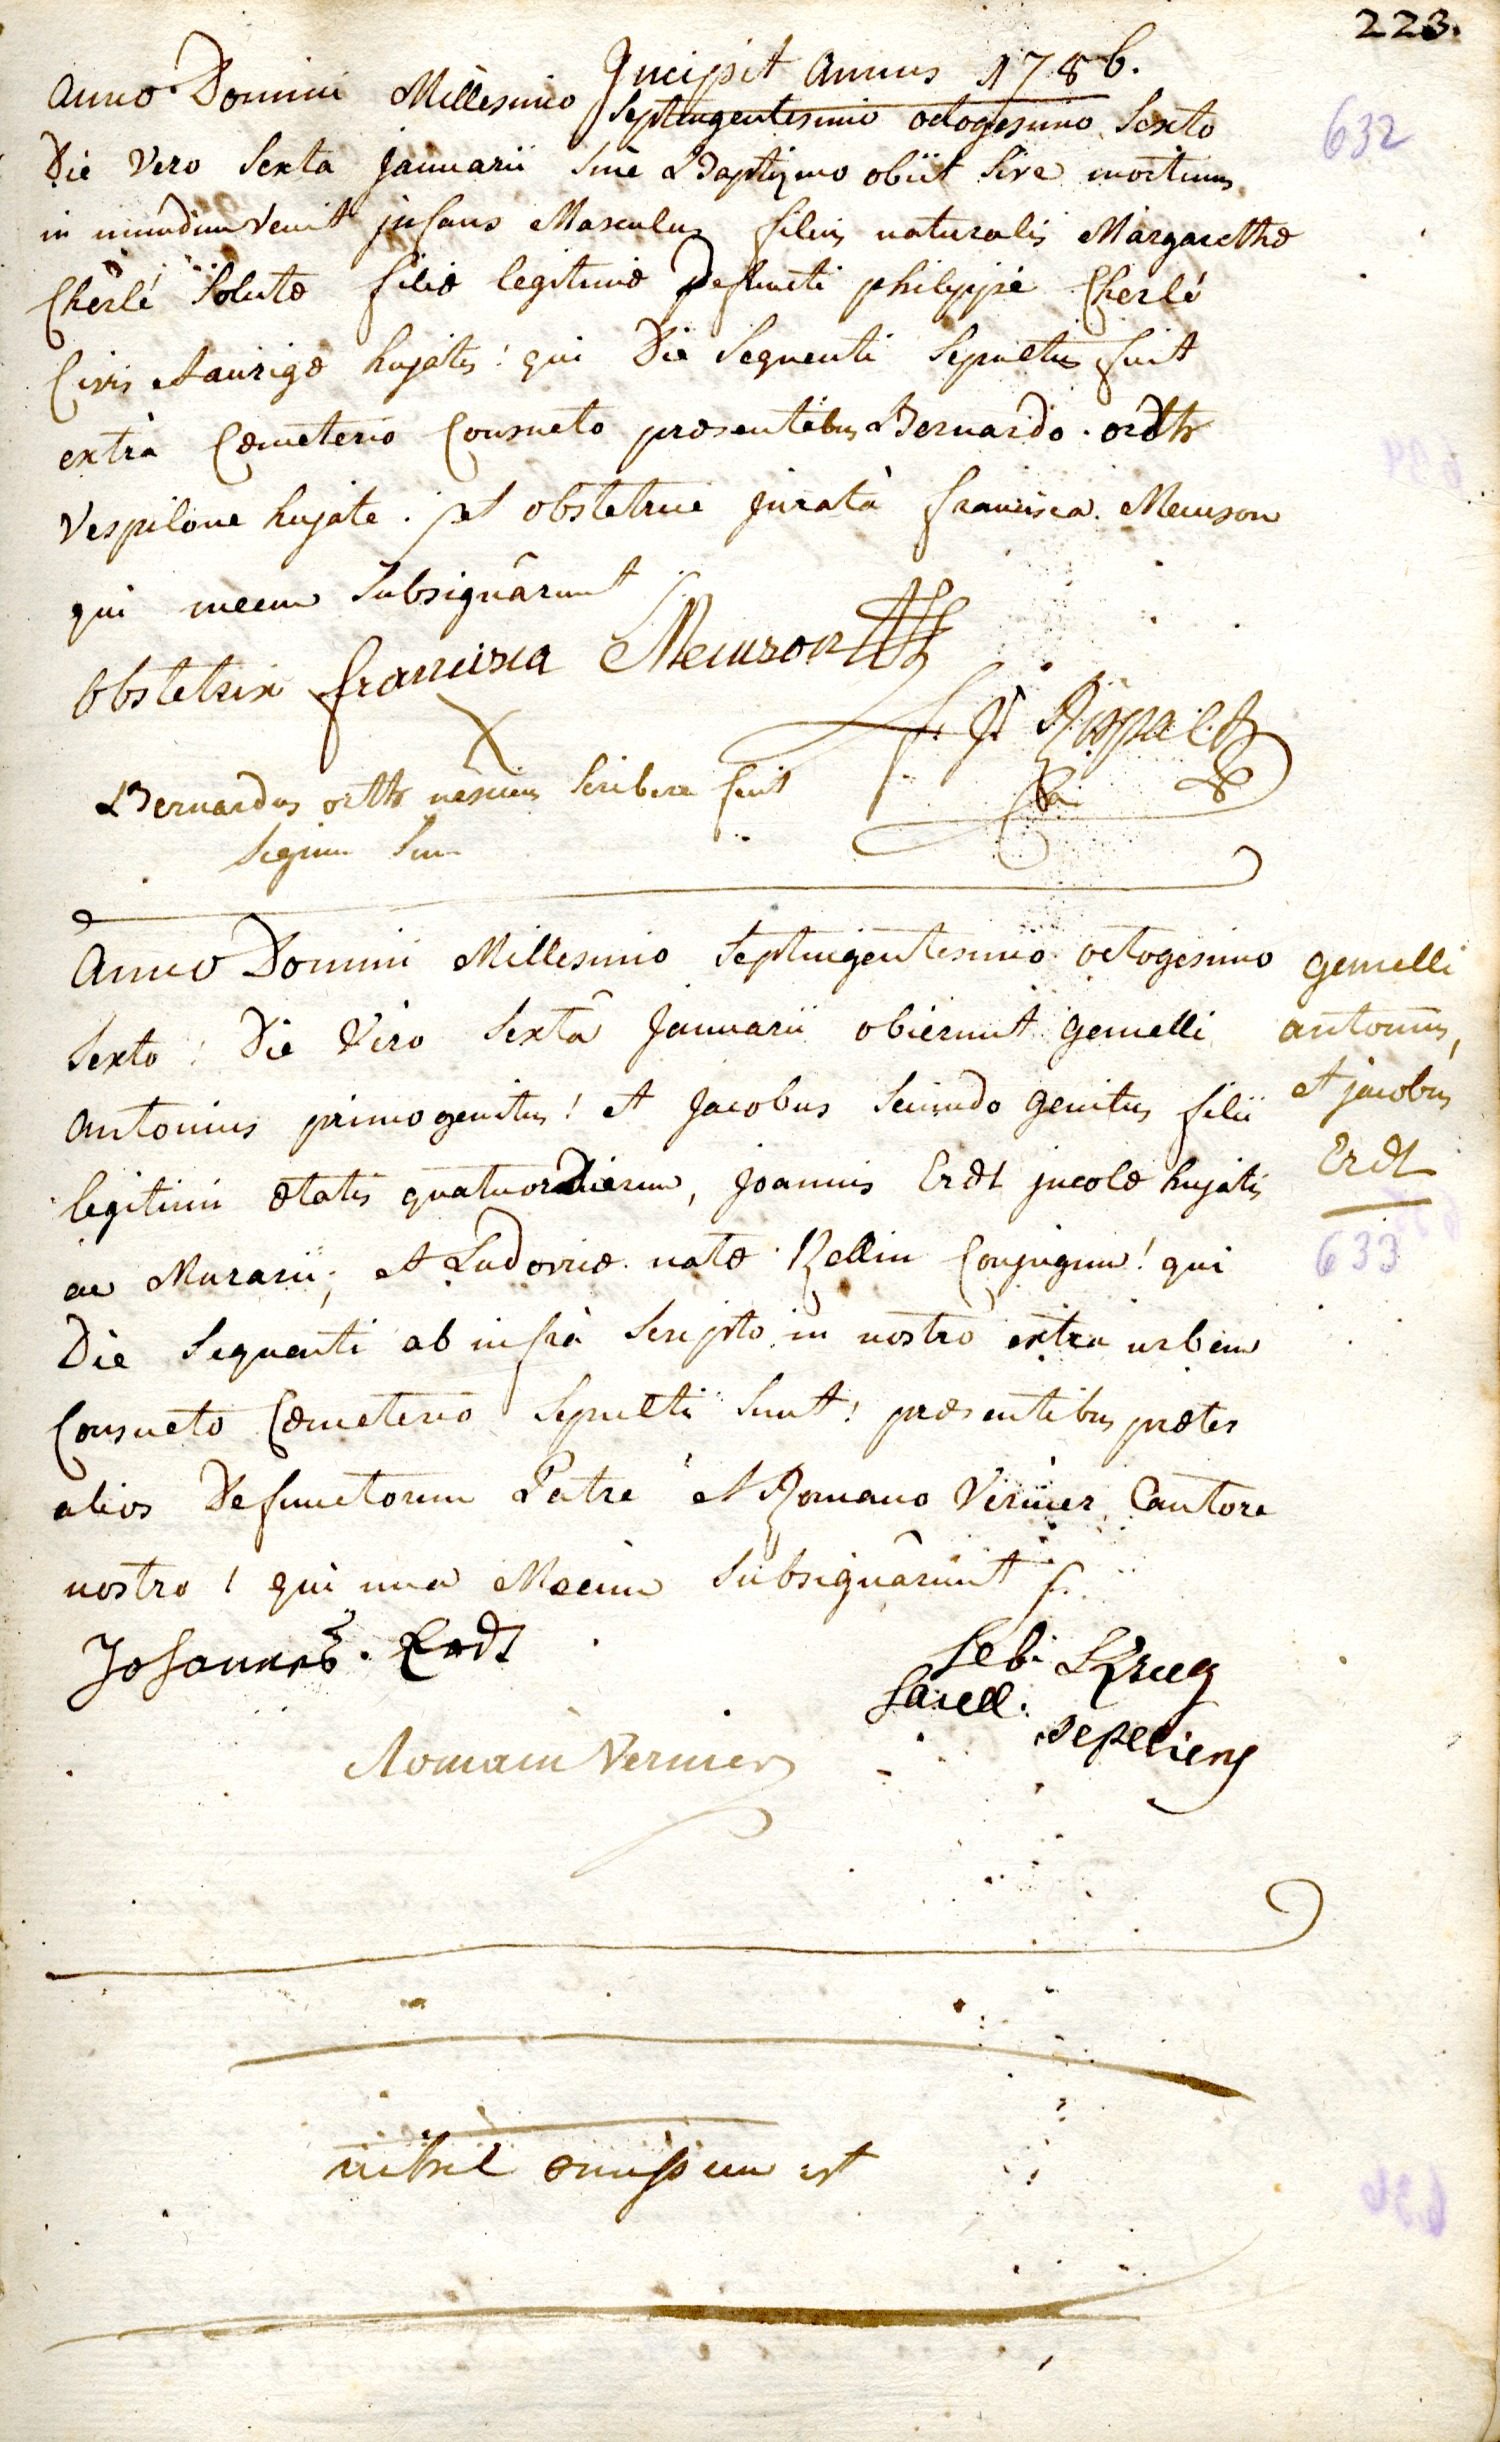 223.
Incipit Annus 1786.
Anno Domini Millesimo Septingentesimo octogesimo Sexto
632
Die Vero Sexta Januarii Sine Baptizmo obiit sive mortuus
in mundum Venit infans Masculus filius naturalis Margarethæ
Cherlé Solutæ filiæ legitimæ Defuncti philippi Cherlé
Civis Aurigæ hujatis! qui Die Sequenti Sepultus fuit
extrà Cœmeterio Consueto præsentibus Bernardo orth
Vespilone hujate. et obstetrice juratà francisca Meuson
qui mecum Subsignârunt
Obstetrix francisca Meuson
Bernardus orth nesciens Scribere fecit
Signum Suum
Anno Domini Millesimo Septingentesimo octogesimo
Sexto! Die Vero Sextâ Januarii obierunt gemelli
Antonius primogenitus! et Jacobus Secundo genitus filii
legitimi ætatis quatuor Dierum, Joannis Erdt incolæ hujatis
ac Murarii, et Ludovicæ natæ Kellin Conjugum! qui
Die Sequenti ab infrà Scripto in nostro extra urbem
Consueto Cœmeterio Sepulti Sunt! præsentibus præter
alios Defunctorum Patre et Romano Vernier Cantore
nostro! qui una Mecum Subsignârunt
gemelli
antonius,
et jacobus
Erdt
633
Johannes Erdt
Seb. Krug
Sacell.
sepeliens
Romain Vernier
nihil omissum est